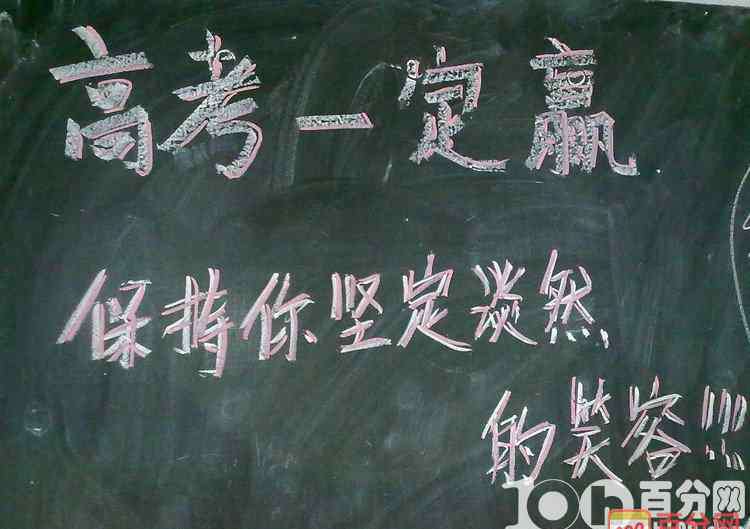 高考一定赢
保持你坚定淡然
的笑容!!!
100百分网